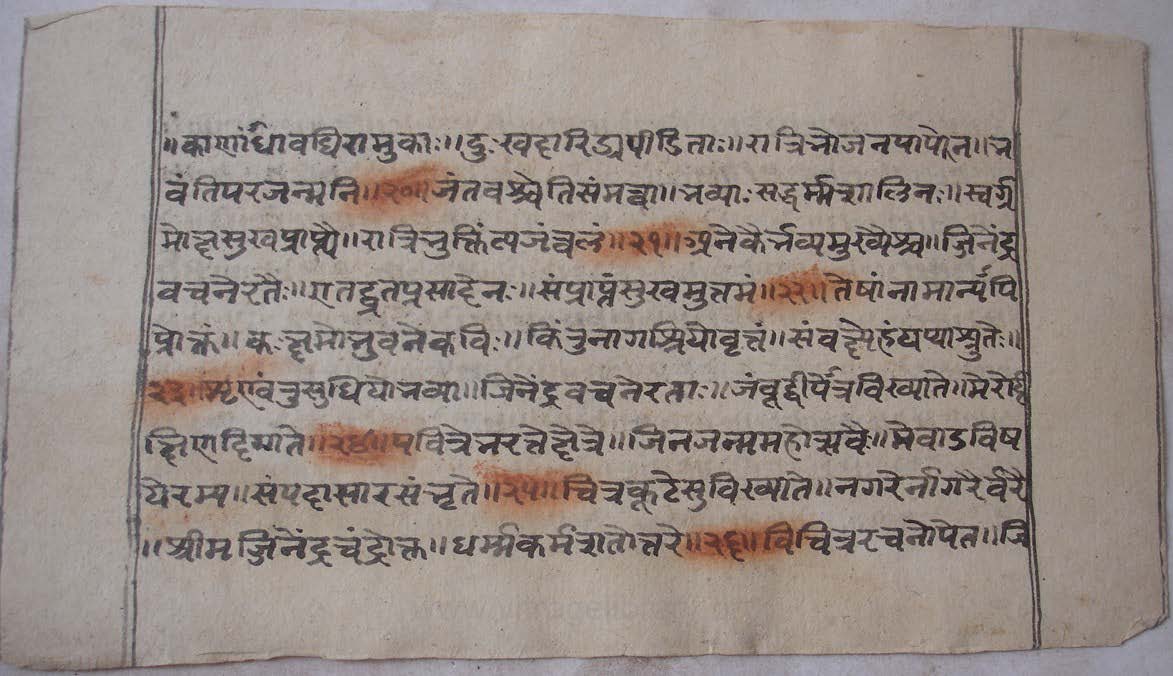 ॥काणांधावधिरामुकाः॥दुःखदारिद्र्यपीडिताः॥रात्रिभोजनपापेन॥भ
वंतिपरजन्मनि॥२०॥जंतवश्चेतिसंमत्वा॥भव्याःसद्धर्म्मशालिनः॥स्वर्ग्ग
मोक्षसुखप्राप्त्यै॥रात्रिभुक्तिंत्यजंत्वलं॥२१॥अनेकैर्भव्यमुख्यैश्च॥जिनेंद्र
वचनैरतैः॥एतद्व्रतप्रसादेन॥संप्राप्तंसुखमुत्तमं॥२२॥तेषांनामान्यपि
प्रोक्तं॥कःक्षमोभुवनेकविः॥किंतुनागश्रियोवृत्तं॥संवक्ष्येहंयथाश्रुतं॥
२३॥शृण्वंतुसुधियोभव्या॥जिनेंद्रवचनेरताः॥जंबूद्वीपेत्रविख्याते॥मेरोर्द
क्षिणदिग्गते॥२४॥पवित्रेभरतेक्षेत्रे॥जिनजन्ममहोत्सवैः॥मेवाडविष
येरम्ये॥संपदासारसंभृते॥२५॥चित्रकूटेसुविख्याते॥नगरेनागरैर्वरै
॥श्रीमज्जिनेंद्रचंद्रोक्त॥धर्म्मकर्मशतोत्तरे॥२६॥विचित्ररचनोपेत॥जि